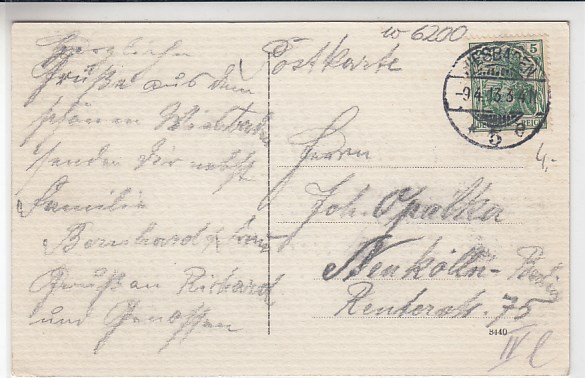 w 6200
Postkarte
5
WIESBADEN
-9.4.13.3-4N
* 5 d
4,-
Herzlichen
Grüße aus dem
schönen Wiesbaden
senden dir nebst
Familie
Bernhard &
Gruß an Richard
und Genossen
Herrn
Joh. Opalka
Neukölln- Berlin
Reuterstr. 75
IV l
8440